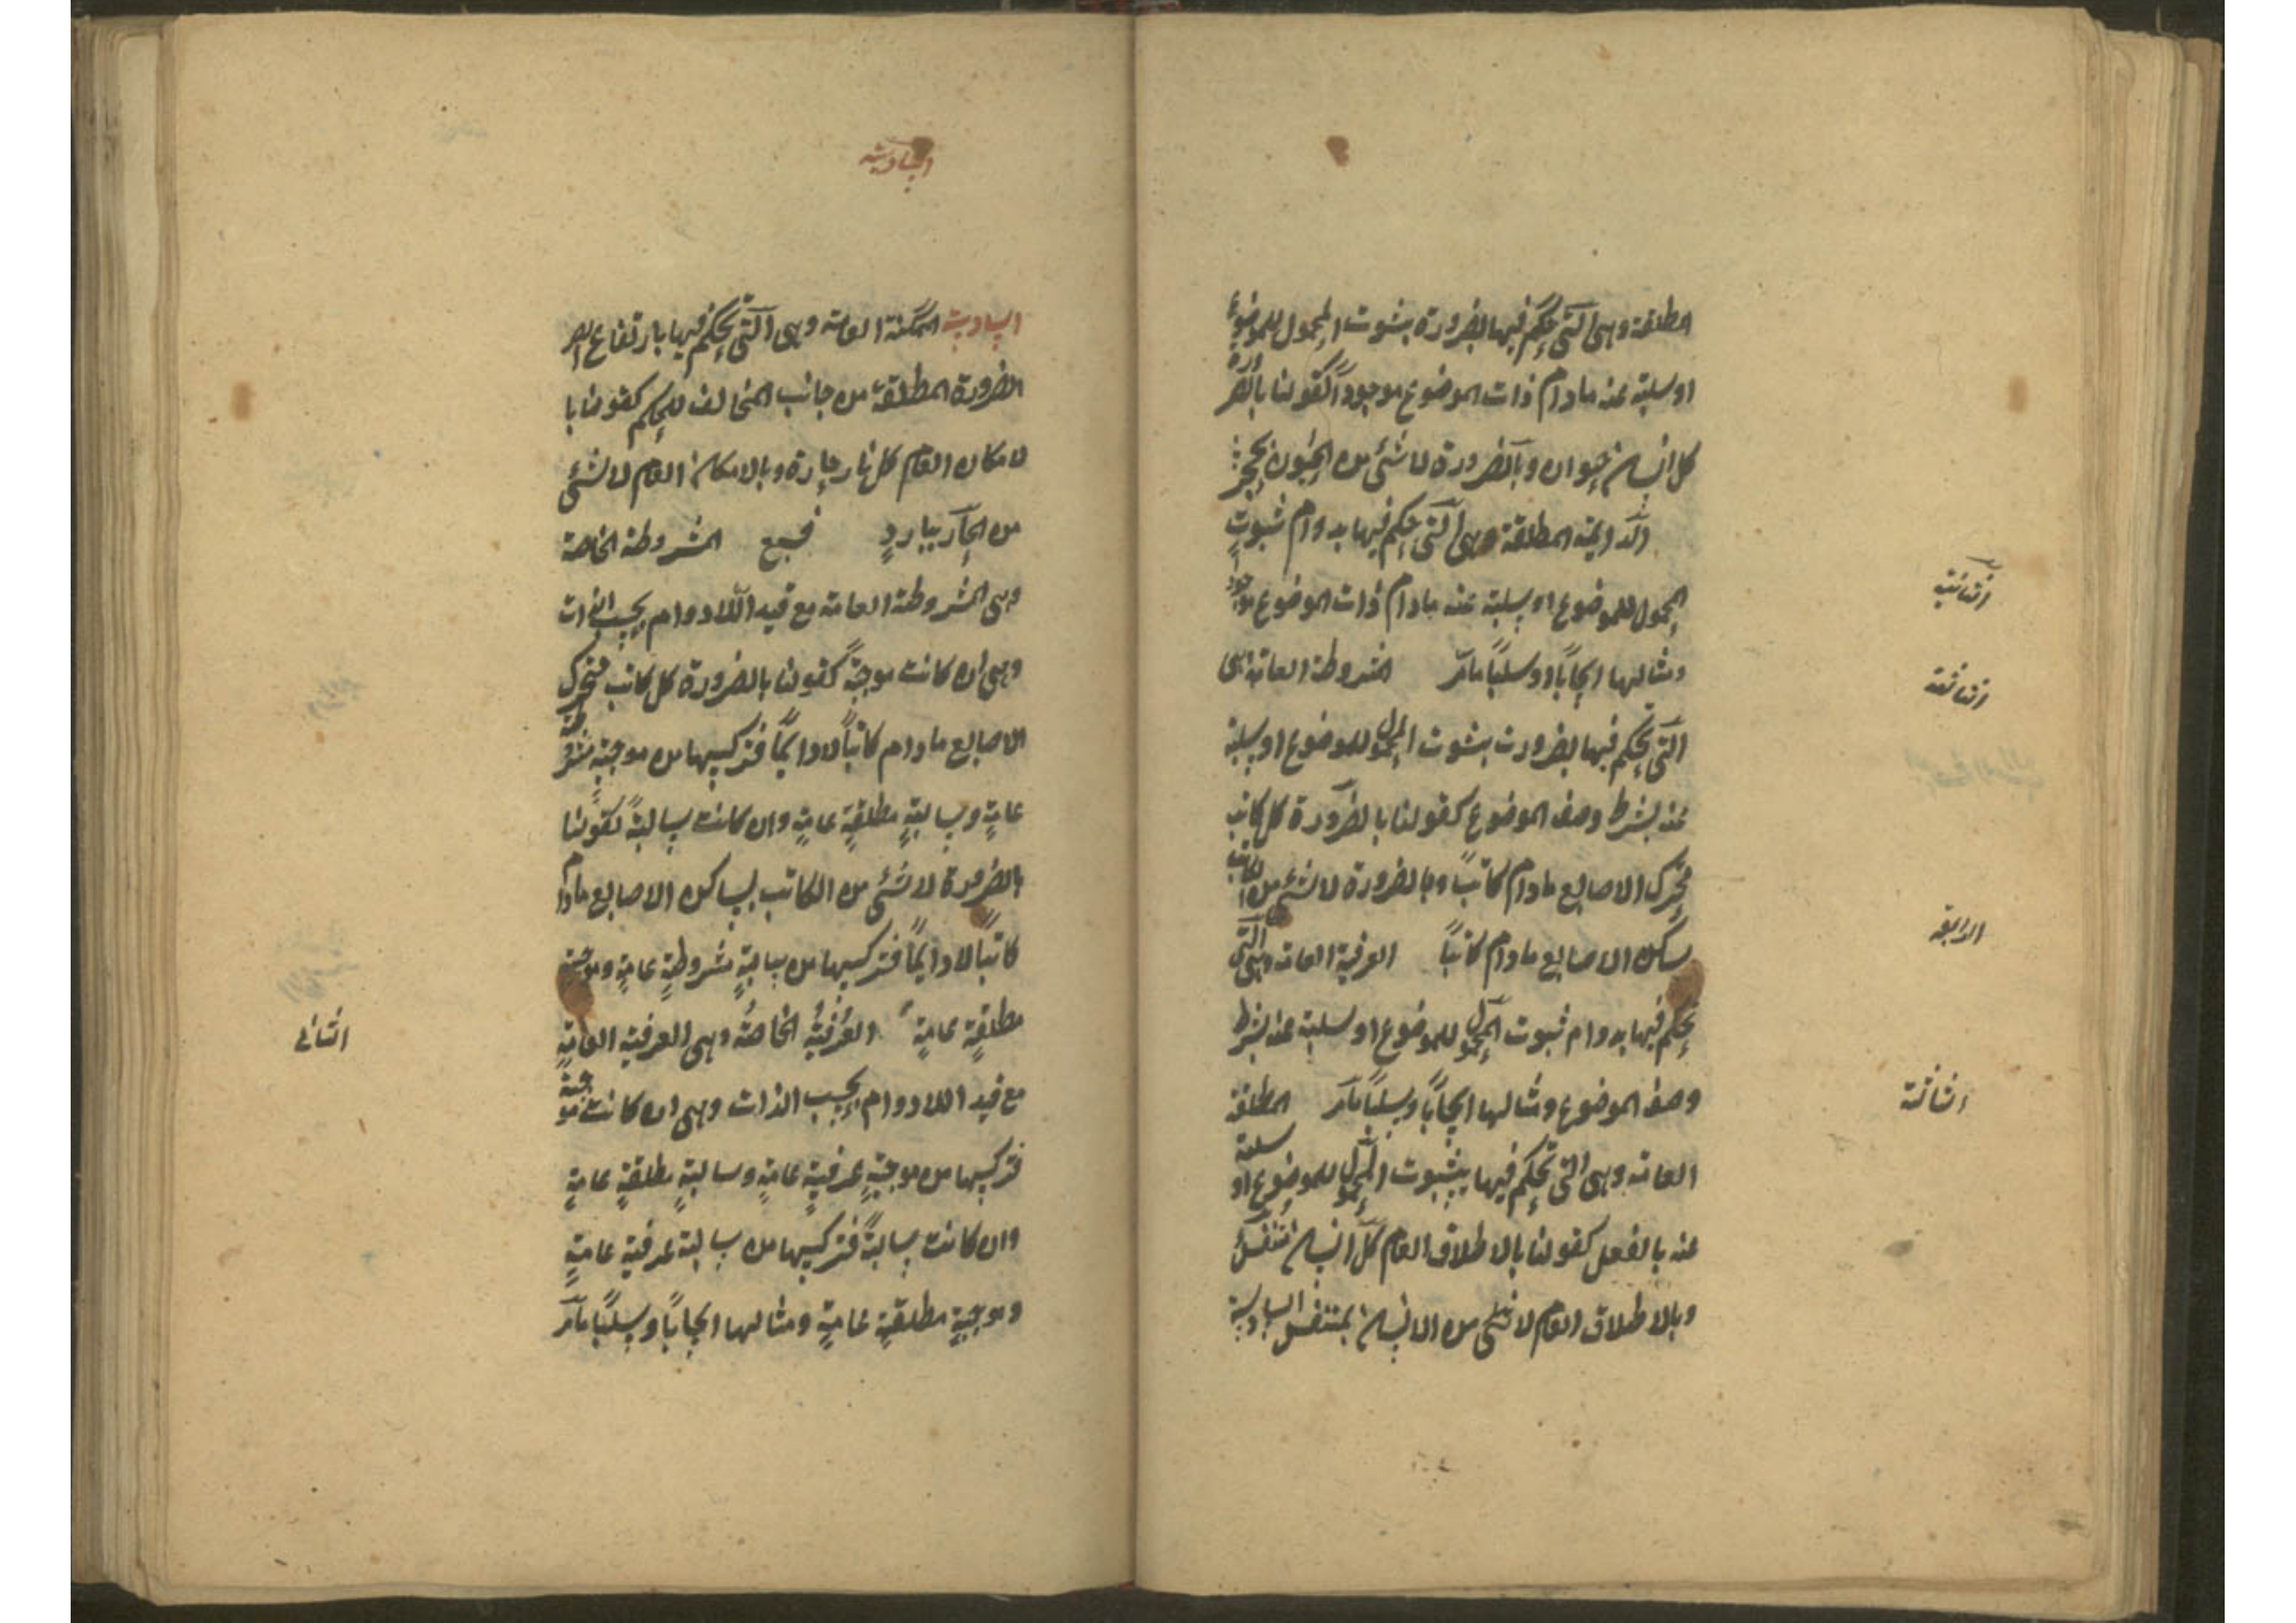 المطلقة وهى التى يحكم فيها بضرورة بثبوت المحمول للموضوع
او سلبه عنه مادام ذات الموضوع موجوداً كقولنا بالضرورة
كل انسان حيوان وبالضرورة لا شئ من الحيوان بحجر
الدايمة المطلقة وهى التى يحكم فيها بدوام ثبوت
المحمول للموضوع او سلبه عنه مادام ذات الموضوع موجود
الثانية
ومثالها ايجاباً او سلباً مامر المشروطة العامة هى
الثالثة
التى يحكم فيها بضرورت بثبوت المحمول للموضوع او سلبه
عنه بشرط وصف الموضوع كقولنا بالضرورة كل كاتب
متحرك الاصابع مادام كاتباً وبالضرورة لا شئ من الكاتب
بساكن الاصابع مادام كاتباً العرفية العامة وهى التى
الرابعة
يحكم فيها بدوام ثبوت المحمول للموضوع او سلبه عنه بشرط
وصف الموضوع ومثالها ايجاباً وسلباً مامر المطلقة
العامة وهى التى يحكم فيها بثبوت المحمول للموضوع او سلبه
عنه بالفعل كقولنا بالاطلاق العام كل انسان متنفس
وبالاطلاق العام لا شئ من الانسان بمتنفس السادسة
السادسة
السادسة الممكنة العامة وهى التى يحكم فيها بارتفاع
الضرورة المطلقة من جانب المخالف للحكم كقولنا با
لامكان العام كل نار حارة وبالامكان العام لا شئ
من الحار ببارد فسبع المشروطة الخاصة
وهى المشروطة العامة مع قيد اللادوام بحسب الذات
وهى ان كانت موجبة كقولنا بالضرورة كل كاتب متحرك
الاصابع مادام كاتباً لا دايماً فتركيبها من موجبة مشروطة
عامة وسالبة مطلقة عامة وان كانت سالبة كقولنا
بالضرورة لا شئ من الكاتب بساكن الاصابع مادام
كاتباً لا دايماً فتركيبها من سالبة مشروطة عامة وموجبة
مطلقة عامة العرفية الخاصة وهى العرفية العامة
الثانى
مع قيد اللادوام بحسب الذات وهى ان كانت موجبة
فتركيبها من موجبة عرفية عامة وسالبة مطلقة عامة
وان كانت سالبة فتركيبها من سالبة عرفية عامة
وموجبة مطلقة عامة ومثالها ايجاباً وسلباً مامر